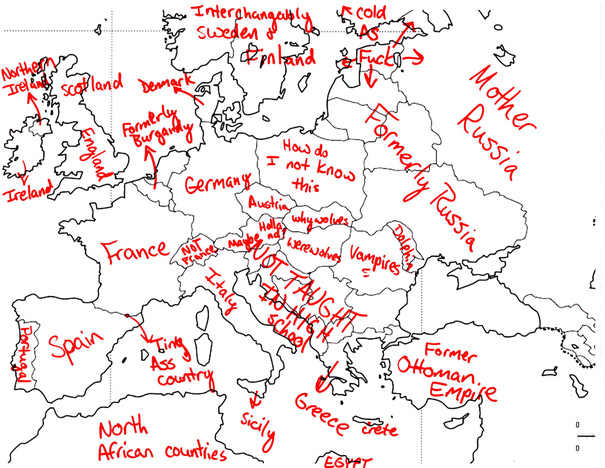 Interchangeably
Sweden &
Finland
cold
As
Fuck
Mother
Russia
Northern
Ireland
Scotland
Denmark
Formerly
Burgandy
England
Ireland
Formerly Russia
How do
I not know
this
Germany
Austria
Holla
nd?
why wolves
Maybe
werewolves
NOT
France
France
Vampires
Dolphin
NOT TAUGHT
IN HIGH
school
Italy
Portugal
Spain
Tiny
Ass
country
Former
Ottoman
Empire
Sicily
Greece
crete
North
African countries
EGYPT
0
0